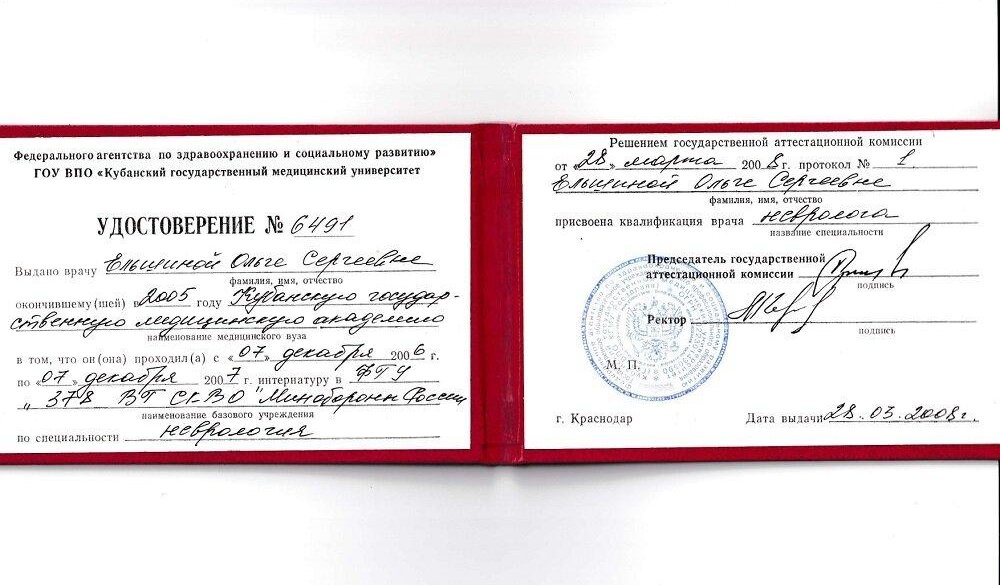 Федерального агентства по здравоохранению и социальному развитию»
ГОУ ВПО «Кубанский государственный медицинский университет
УДОСТОВЕРЕНИЕ № 6491
Выдано врачу Ельшиной Ольге Сергеевне
фамилия, имя, отчество
окончившему(шей) в 2005 году Кубанскую государ-
ственную медицинскую академию
наименование медицинского вуза
в том, что он(она) проходил(а) с «07» декабря 2006 г.
по «07» декабря 2007 г. интернатуру в ФГУ
„378 ВГ СКВО" Минобороны России
наименование базового учреждения
по специальности неврология
Решением государственной аттестационной комиссии
от «28» марта 2008 г. протокол № 1
Ельшиной Ольге Сергеевне
фамилия, имя, отчество
присвоена квалификация врача невролога
название специальности
Председатель государственной
аттестационной комиссии
подпись
Ректор
подпись
М. П.
г. Краснодар Дата выдачи 28.03.2008г.